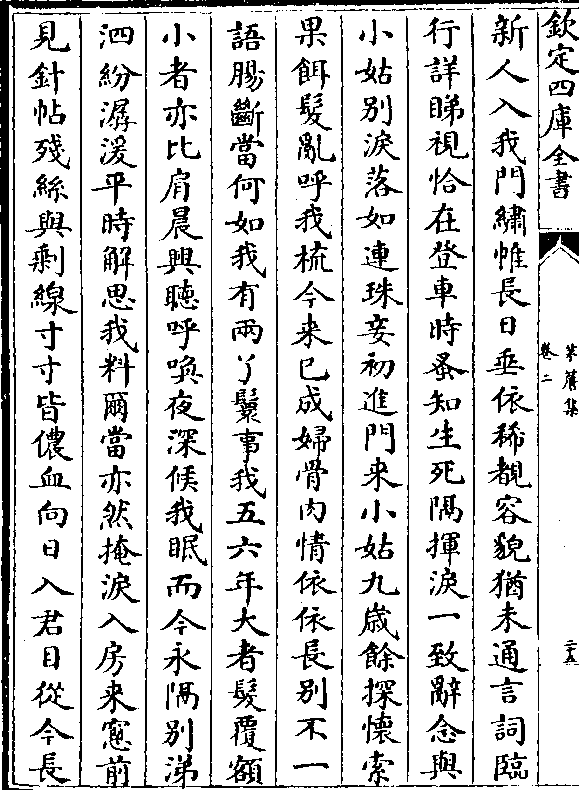 欽定四庫全書
卷二
二十五
新人入我門繡帷長日垂依稀覩容貌猶未通言詞臨
行詳睇視恰在登車時蚤知生死隔揮淚一致辭念與
小姑别淚落如連珠妾初進門來小姑九歳餘探懷索
果餌髮亂呼我梳今来已成婦骨肉情依依長别不一
語腸斷當何如我有兩丫鬟事我五六年大者髮覆額
小者亦比肩晨興聴呼喚夜深候我眠而今永隔别涕
泗紛潺湲平時解思我料爾當亦然掩淚入房来窓前
見針帖殘絲與剩線寸寸皆儂血向日入君目從今長